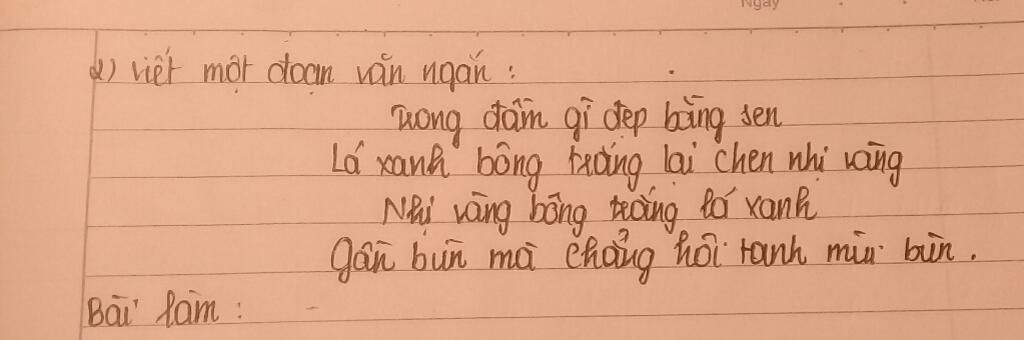 Ngày
2) viết một đoạn văn ngắn :
Trong đầm gì đẹp bằng sen
Lá xanh bông trắng lại chen nhị vàng
Nhị vàng bông trắng lá xanh
Gần bùn mà chẳng hôi tanh mùi bùn .
Bài làm :